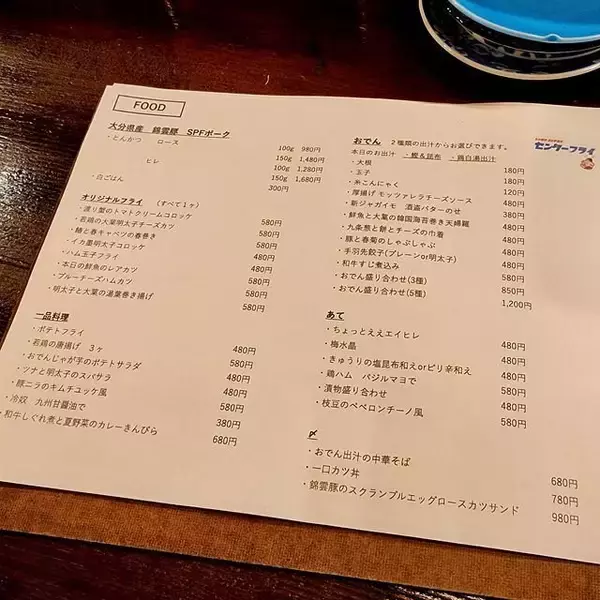 FOOD
大分県産 錦雲豚 SPFポーク
・とんかつ ロース 100g 980円
150g 1,480円
ヒレ 100g 1,280円
150g 1,680円
・白ごはん 300円
オリジナルフライ (すべて1ヶ)
・渡り蟹のトマトクリームコロッケ 580円
・若鶏の大葉明太子チーズカツ 580円
・鱧と春キャベツの春巻き 580円
・イカ墨明太子コロッケ 580円
・ハム玉子フライ 480円
・本日の鮮魚のレアカツ 480円
・ブルーチーズハムカツ 580円
・明太子と大葉の湯葉巻き揚げ 580円
一品料理
・ポテトフライ 480円
・若鶏の唐揚げ 3ヶ 480円
・おでんじゃが芋のポテトサラダ 580円
・ツナと明太子のスパサラ 480円
・豚ニラのキムチユッケ風 580円
・冷奴 九州甘醤油で 380円
・和牛しぐれ煮と夏野菜のカレーきんぴら 680円
センターフライ
おでん 2種類の出汁からお選びできます。
本日のお出汁 ・鰹&昆布 ・鶏白湯出汁
・大根 180円
・玉子 180円
・糸こんにゃく 120円
・厚揚げ モッツァレラチーズソース 480円
・新ジャガイモ 酒盗バターのせ 380円
・鮮魚と大葉の韓国海苔巻き天婦羅 480円
・九条葱と餅とチーズの巾着 480円
・豚と春菊のしゃぶしゃぶ 480円
・手羽先餃子(プレーンor明太子) 480円
・和牛すじ煮込み 580円
・おでん盛り合わせ(3種) 850円
・おでん盛り合わせ(5種) 1,200円
あて
・ちょっとええエイヒレ 580円
・梅水晶 480円
・きゅうりの塩昆布和えorピリ辛和え 480円
・鶏ハム バジルマヨで 480円
・漬物盛り合わせ 580円
・枝豆のペペロンチーノ風 580円
〆
・おでん出汁の中華そば 680円
・一口カツ丼 780円
・錦雲豚のスクランブルエッグロースカツサンド 980円